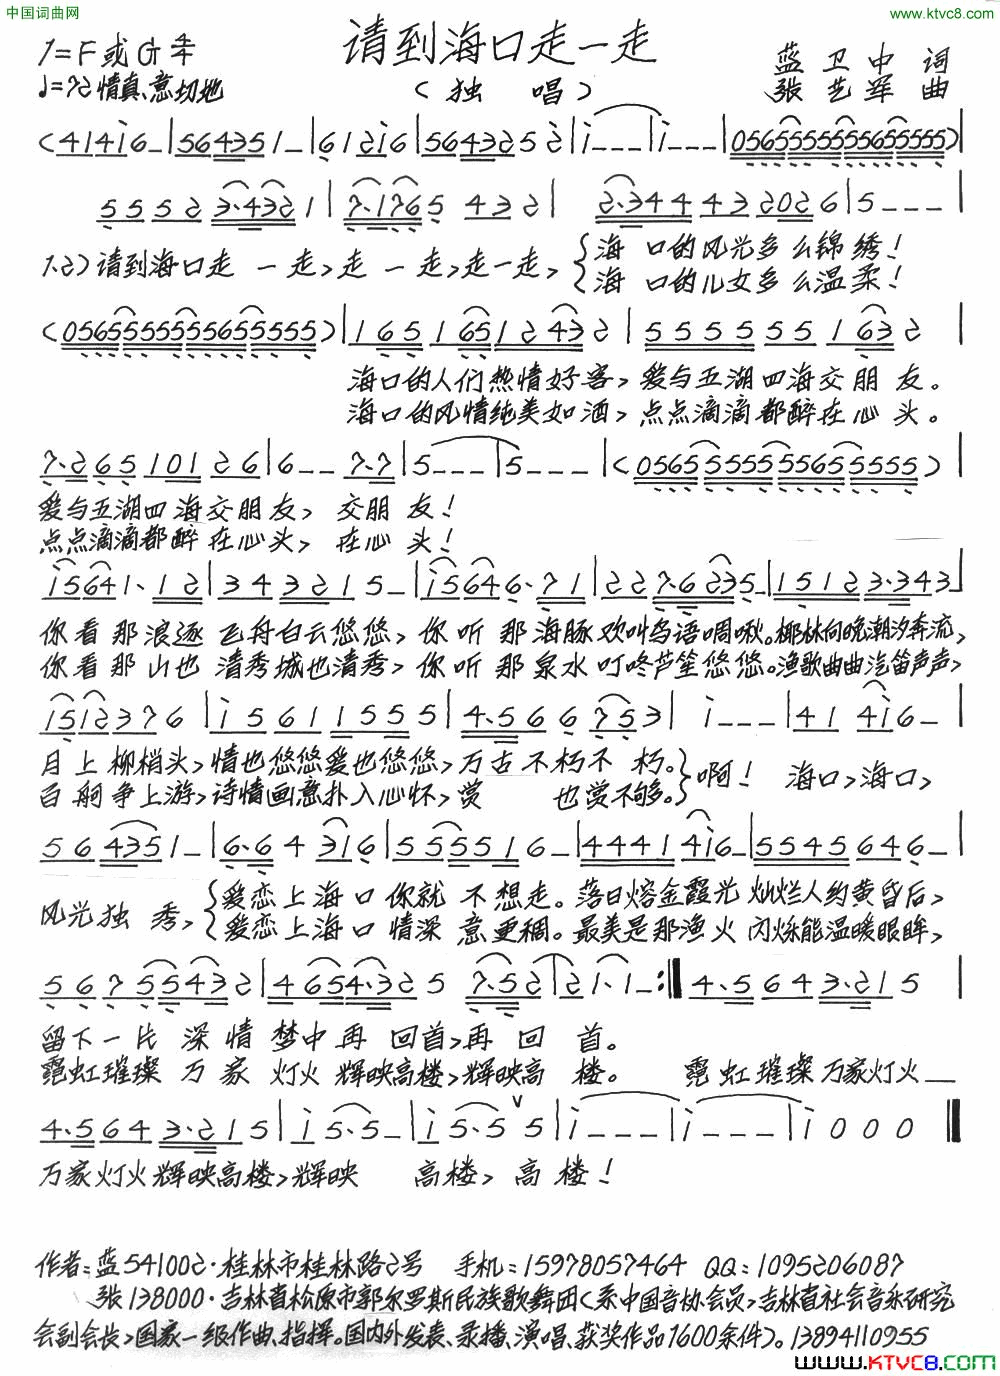 中国词曲网
www.ktvc8.com
请到海口走一走
1=F或G 4/4
♩=72 情真、意切地
(独 唱)
蓝 卫 中 词
张 艺 军 曲
(4 1 4 i 6 – | 5 6 4 3 5 1 – | 6 1 2 i 6 | 5 6 4 3 2 5 2 | i – – – | i – – – | 0 5 6 5 5 5 5 5 5 5 6 5 5 5 5 5) |
5 5 5 2 3·4 3 2 1 | 7·1 7 6 5 4 3 2 | 2·3 4 4 4 3 2 0 2 6 | 5 – – – |
1.2) 请到海口走 一 走,走 一 走,走一走,
海 口的风光多 么锦 绣!
海 口的儿女多 么温 柔!
(0 5 6 5 5 5 5 5 5 5 6 5 5 5 5 5) | 1 6 5 1 6 5 1 2 4 3 2 | 5 5 5 5 5 5 5 1 6 3 2
海口的人们热情好客,爱与五湖四海交朋 友。
海口的风情纯美如酒,点点滴滴都醉在心 头。
7·2 6 5 1 0 1 2 6 | 6 – – 7·7 | 5 – – – | 5 – – – | (0 5 6 5 5 5 5 5 5 5 6 5 5 5 5 5) |
爱与五湖四海交朋友, 交朋 友!
点点滴滴都醉 在心头, 在心 头!
i 5 6 4 1· 1 2 | 3 4 3 2 1 5 – | i 5 6 4 6·7 1 | 2 2 7·6 2 3 5 – | 1 5 1 2 3·3 4 3 |
你 看 那 浪逐 飞舟白云悠悠,你 听 那 海豚 欢叫鸟语啁啾。椰林向晚潮汐奔流,
你 看 那 山也 清秀城也清秀,你 听 那 泉水 叮咚芦笙悠悠。渔歌曲曲汽笛声声,
1 5 1 2 3 7 6 | i 5 6 1 1 5 5 5 | 4·5 6 6 7 5 3 | i – – – | 4 1 4 i 6 –
月上 柳梢头,情也悠悠爱也悠悠,万古不朽不 朽。
百舸争上游,诗情画意扑入心怀,赏 也赏不够。
啊! 海口,海口,
5 6 4 3 5 1 – | 6·6 4 3 1 6 | 5 5 5 5 1 6 – | 4 4 4 1 4 i 6 – | 5 5 4 5 6 4 6 – |
风光独 秀,
爱恋上海 口 你就 不想走。落日熔金霞光 灿烂人约黄昏后,
爱恋上海 口 情深 意更稠。最美是那渔火 闪烁能温暖眼眸,
5 6 7 5 5 4 3 2 | 4 6 5 4·3 2 5 | 7·5 2 | 2 1·1 – :| 4·5 6 4 3·2 1 5 |
留下一片 深 情 梦中再 回首,再 回 首。
霓虹璀璨 万 家 灯火 辉映高楼,辉映高 楼。 霓虹璀璨万家灯火
4·5 6 4 3·2 1 5 | i 5·5 – | i 5·5 5 | i – – – | i – – – | i 0 0 0 ‖
万家灯火辉映高楼,辉映 高楼, 高 楼!
作者:蓝541002·桂林市桂林路2号 手机:15978057464 QQ:1095206087
张138000·吉林省松原市郭尔罗斯民族歌舞团(系中国音协会员,吉林省社会音乐研究
会副会长,国家一级作曲、指挥。国内外发表、录播、演唱、获奖作品1600余件)。13894110955
www.KTVC8.com